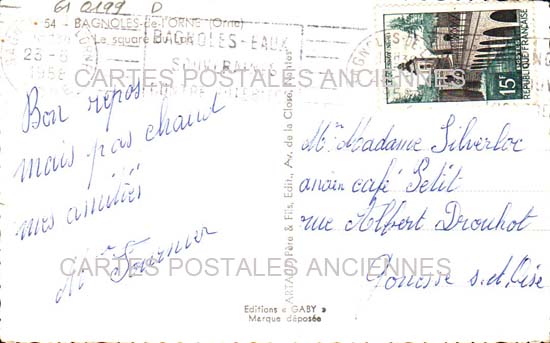 61 0199 D
54 - BAGNOLES-de-l'ORNE (Orne)
Le square du Lac
BAGNOLES-EAUX
SOUVERAINE
23-6
1958
CARTES POSTALES ANCIENNES
Bon repos
mais pas chaud
mes amitiés
Mme Fournier
ARTAUD Père & Fils, Edit., Av. de la Close, Nantes
Editions « GABY »
Marque déposée
15F
POSTES
REPUBLIQUE FRANÇAISE
Mr Madame Silverloc
ancien café Petit
rue Albert Drouhot
Gonesse s.et.Oise
CARTES POSTALES ANCIENNES